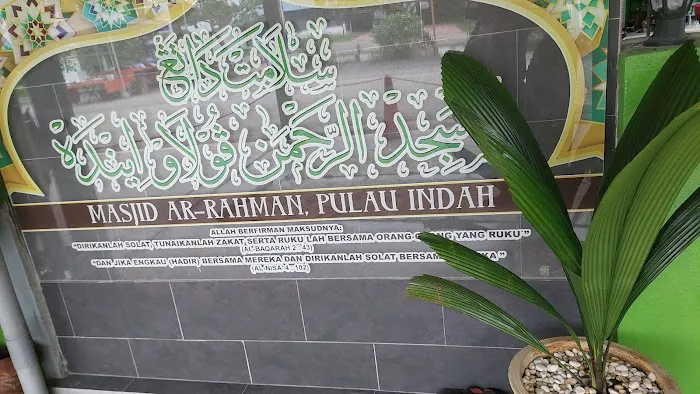 سلامت داتڠ
مسجد الرحمن ڤولاو اينده
MASJID AR-RAHMAN, PULAU INDAH
ALLAH BERFIRMAN MAKSUDNYA:
"DIRIKANLAH SOLAT,TUNAIKANLAH ZAKAT SERTA RUKU LAH BERSAMA ORANG-ORANG YANG RUKU"
(AL-BAQARAH 2 : 43)
"DAN JIKA ENGKAU (HADIR) BERSAMA MEREKA DAN DIRIKANLAH SOLAT BERSAMA MEREKA"
(AL-NISA 4 : 102)